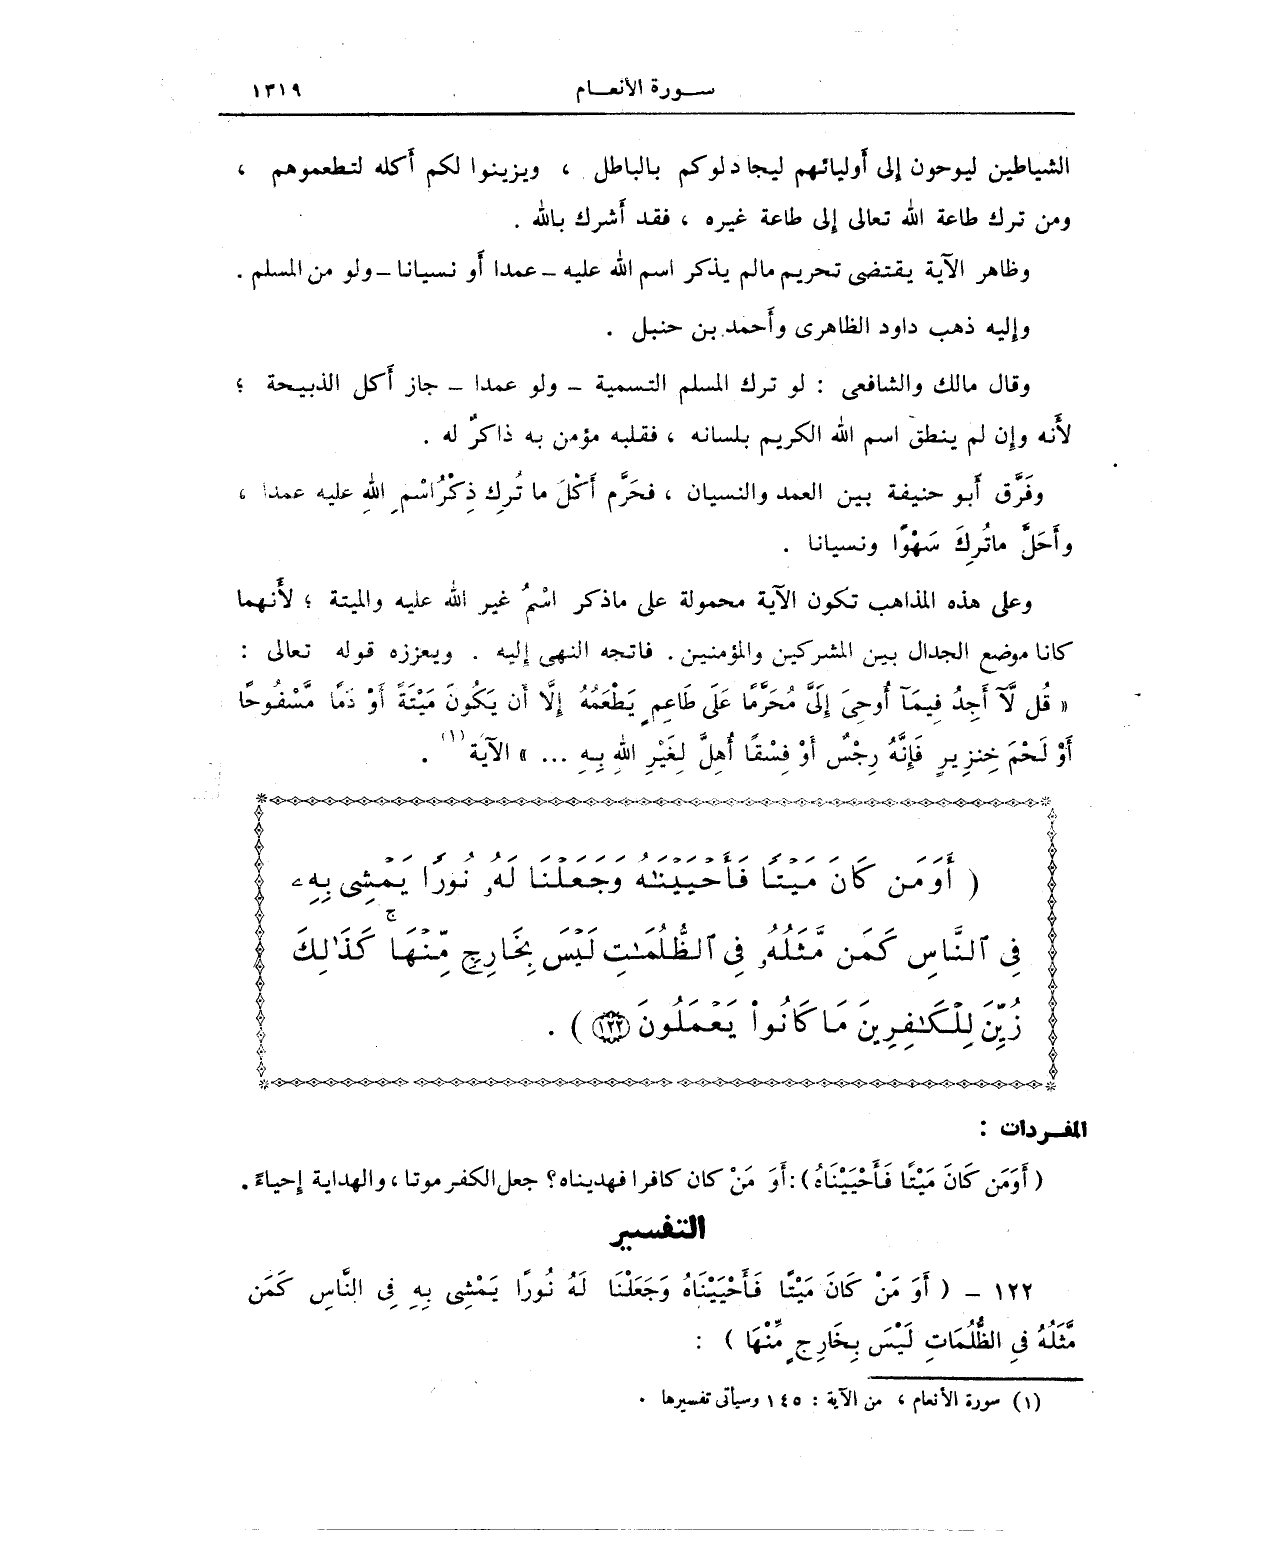 سورة الأنعام ١٣١٩
الشياطين ليوحون إلى أوليائهم ليجادلوكم بالباطل ، ويزينوا لكم أكله لتطعموهم ،
ومن ترك طاعة الله تعالى إلى طاعة غيره ، فقد أشرك بالله .
وظاهر الآية يقتضى تحريم مالم يذكر اسم الله عليه – عمدا أو نسيانا – ولو من المسلم .
وإليه ذهب داود الظاهرى وأحمد بن حنبل .
وقال مالك والشافعى : لو ترك المسلم التسمية – ولو عمدا – جاز أكل الذبيحة ؛
لأنه وإن لم ينطق اسم الله الكريم بلسانه ، فقلبه مؤمن به ذاكرٌ له .
وفَرَّق أبو حنيفة بين العمد والنسيان ، فحَرَّم أكْلَ ما تُرِك ذِكْرُ اسْمِ اللهِ عليه عمدا ،
وأَحَلَّ ماتُرِكَ سَهْوًا ونسيانا .
وعلى هذه المذاهب تكون الآية محمولة على ماذكر اسْمُ غير الله عليه والميتة ؛ لأنهما
كانا موضع الجدال بين المشركين والمؤمنين . فاتجه النهى إليه . ويعززه قوله تعالى :
« قُل لَّآ أَجِدُ فِيمَآ أُوحِىَ إِلَىَّ مُحَرَّمًا عَلَى طَاعِمٍ يَطْعَمُهُ إِلَّا أَن يَكُونَ مَيْتَةً أَوْ دَمًا مَّسْفُوحًا
أَوْ لَحْمَ خِنزِيرٍ فَإِنَّهُ رِجْسٌ أَوْ فِسْقًا أُهِلَّ لِغَيْرِ اللهِ بِهِ ... » الآية (١) .
( أَوَمَن كَانَ مَيْتًا فَأَحْيَيْنَٰهُ وَجَعَلْنَا لَهُۥ نُورًا يَمْشِى بِهِۦ
فِى ٱلنَّاسِ كَمَن مَّثَلُهُۥ فِى ٱلظُّلُمَٰتِ لَيْسَ بِخَارِجٍ مِّنْهَا ۚ كَذَٰلِكَ
زُيِّنَ لِلْكَٰفِرِينَ مَا كَانُوا۟ يَعْمَلُونَ ١٢٢ ) .
المفردات :
( أَوَمَن كَانَ مَيْتًا فَأَحْيَيْنَاهُ ) : أَوَ مَنْ كان كافرا فهديناه ؟ جعل الكفر موتا ، والهداية إحياءً .
التفسير
١٢٢ – ( أَوَ مَنْ كَانَ مَيْتًا فَأَحْيَيْنَاهُ وَجَعَلْنَا لَهُ نُورًا يَمْشِى بِهِ فِى النَّاسِ كَمَن
مَّثَلُهُ فِى الظُّلُمَاتِ لَيْسَ بِخَارِجٍ مِّنْهَا ) :
(١) سورة الأنعام ، من الآية : ١٤٥ وسيأتى تفسيرها .